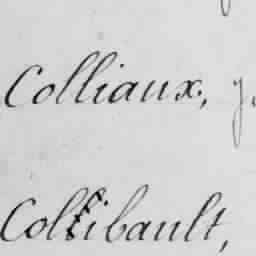 Colliaux.,
Collibault,